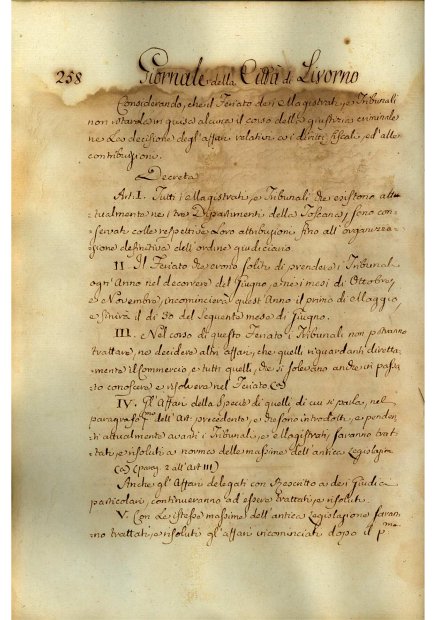 258 Giornale della Città di Livorno
Considerando, che il Feriato dei Magistrati, e Tribunali
non ritarda in guisa alcuna il corso della giustizia criminale
ne Le decisioni degl'affari relativi ai diritti fiscali, ed alle
contribuzione.
Decreta
Art. I. Tutti i Magistrati, e Tribunali che esistono attu-
tualmente nei tre Dipartimenti della Toscana, sono con-
servati colle respettive Loro attribuzioni fino all'organizza-
zione definitiva dell'ordine giudiciario.
II Il Feriato che erano soliti di prendere i Tribunali
ogn'Anno nel decorrere del Giugno, e nei mesi di Ottobre,
e Novembre, incomincierà quest'Anno il primo di Maggio,
e finirà il dì 30 del seguente mese di Giugno.
III. Nel corso di questo Feriato i Tribunali non potranno
trattare, ne decidere altri affari, che quelli riguardanti diretta-
mente il Commercio e tutti quelli, che si solevano anche in passa-
to conoscere e risolvere nel Feriato
IV. Gl'Affari della specie di quelli di cui si parla, nel
paragrafo pmo dell'Art. precedente, e che sono introdotti, e penden-
ti attualmente avanti i Tribunali, e Magistrati saranno trat-
tati, e risoluti a norma delle massime dell'antica Legislazione
(a) (parag. 2 all'Art III)
Anche gl'Affari delegati con Rescritto a dei Giudici
particolari, continueranno ad essere trattati, e risoluti.
V. Con Le istesse massime dell'antica Legislazione saran-
no trattati, e risoluti gl'affari incominciati dopo il pmo